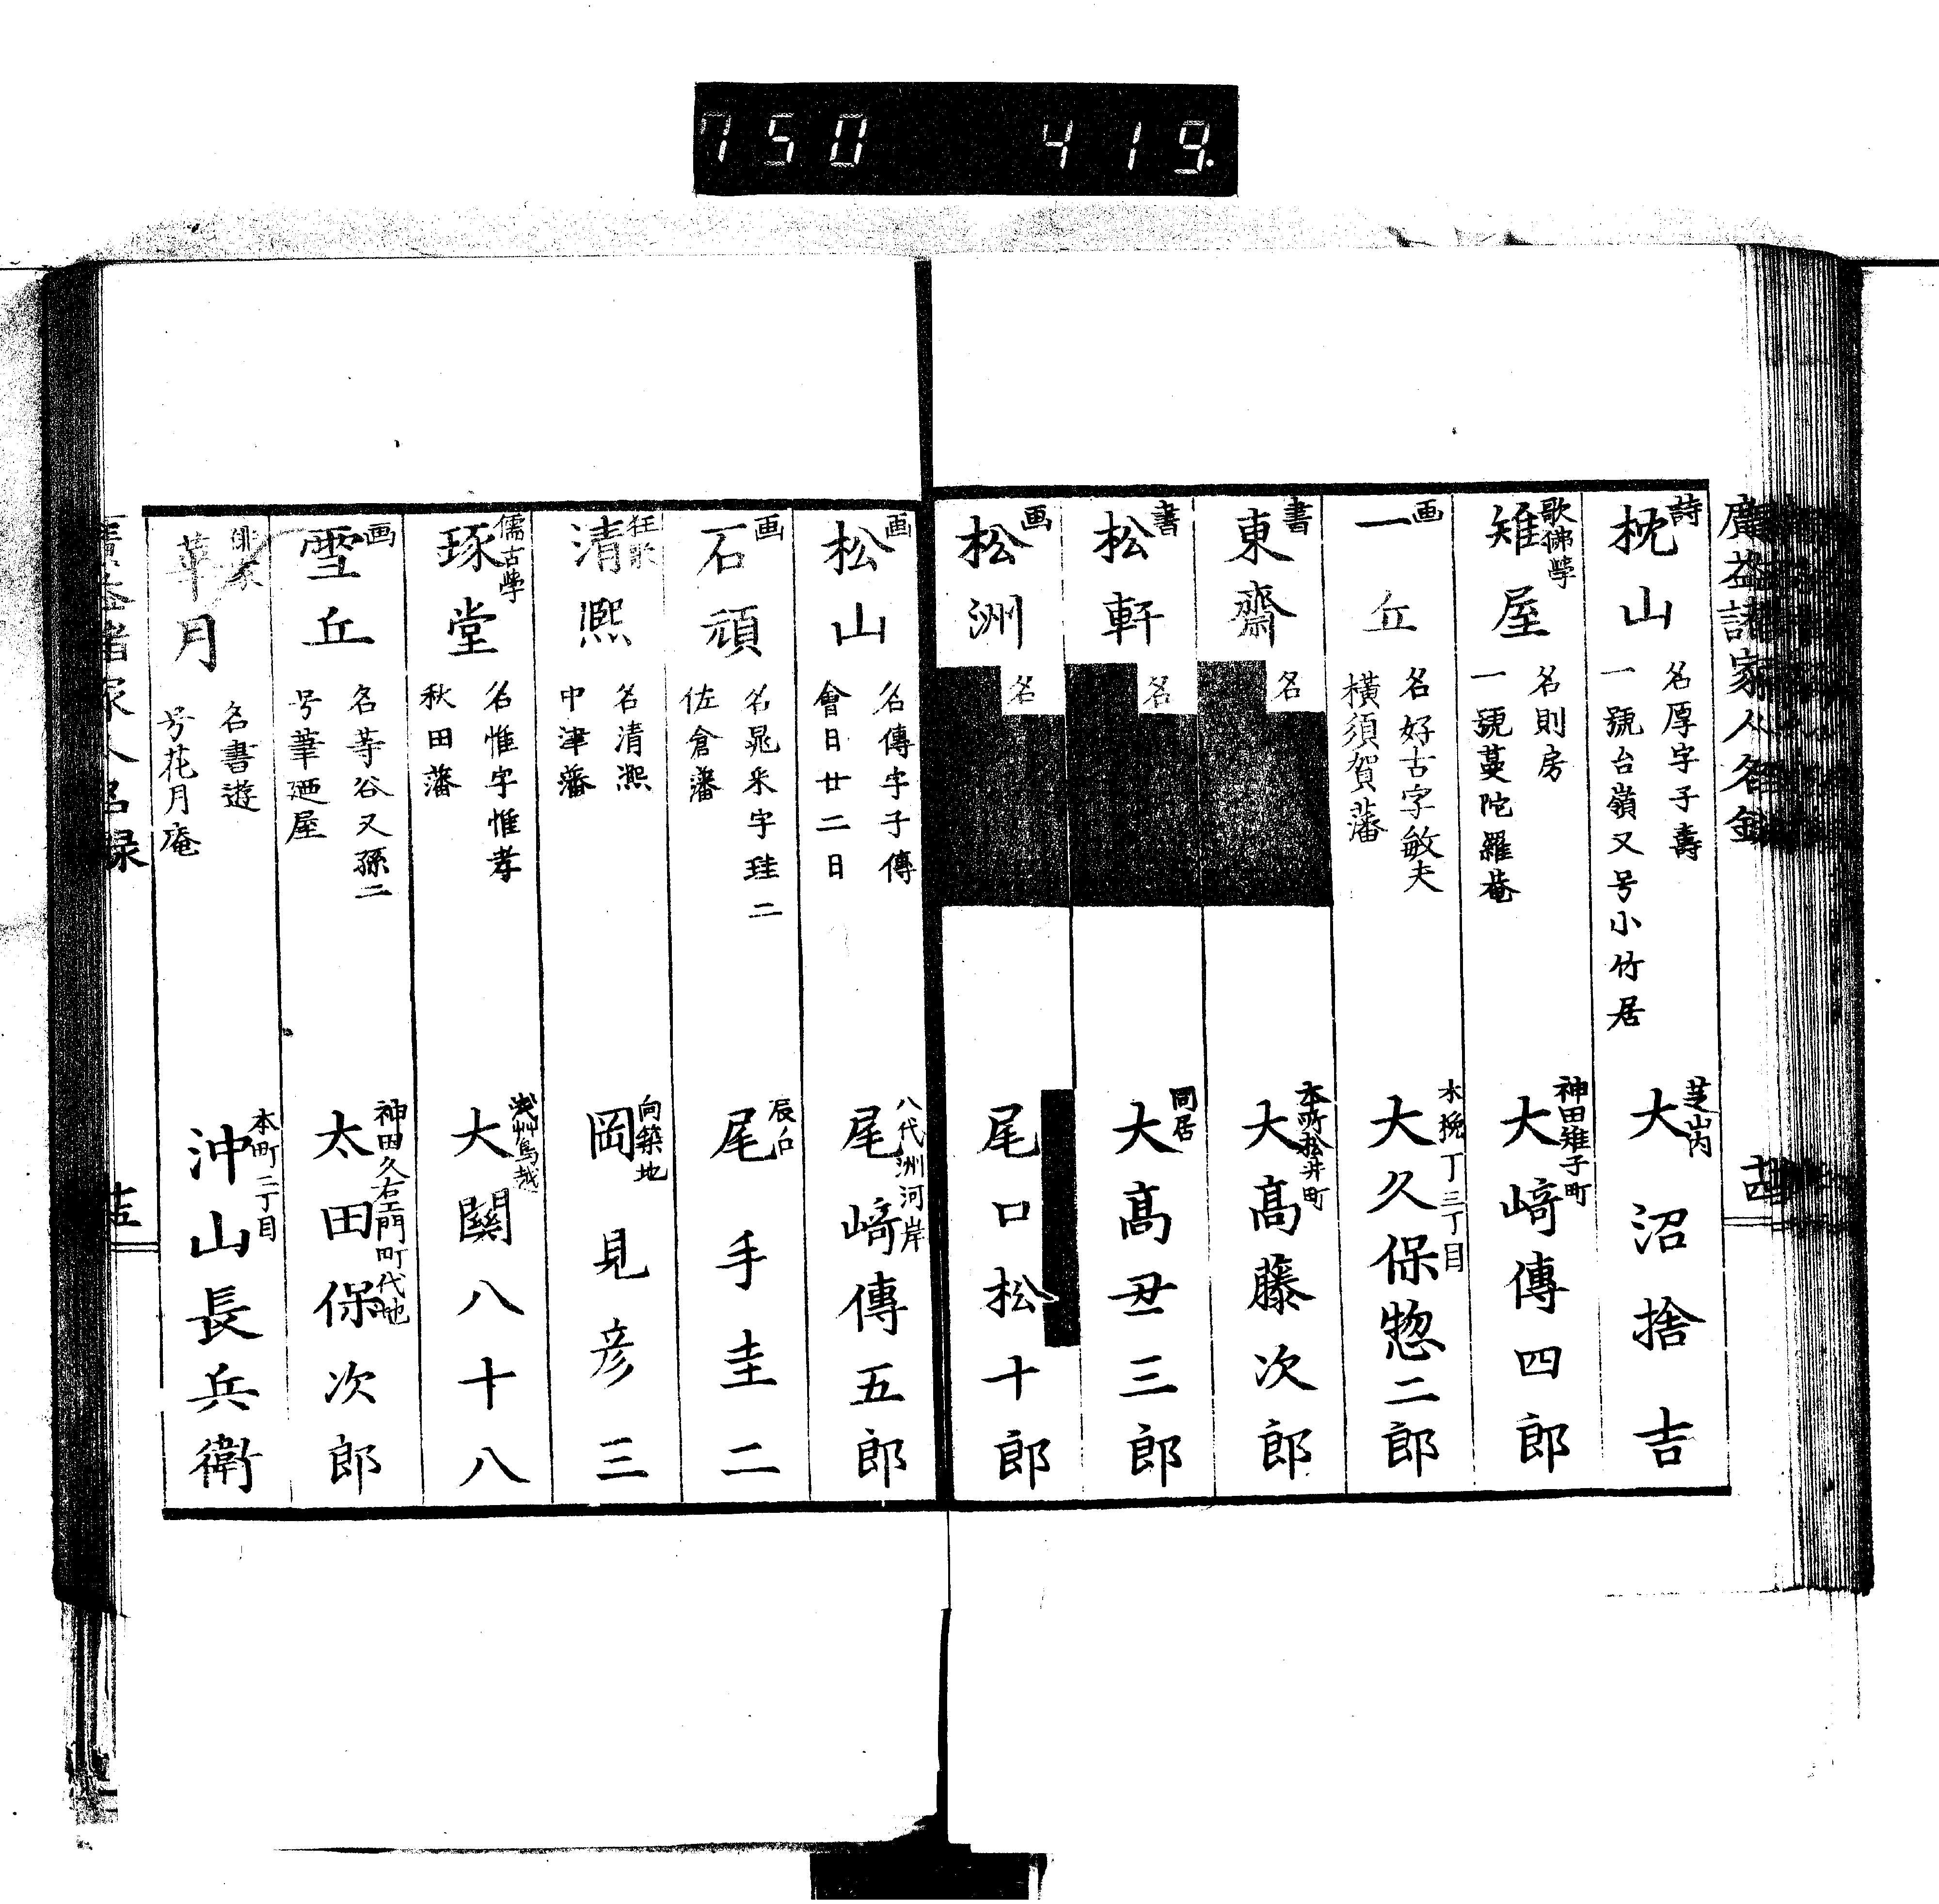 750 419.
廣益諸家人名録
十四
詩 枕山 名厚字子壽 一號台嶺又号小竹居 芝山内 大沼捨吉
歌佛學 雉屋 名則房 一號蔓陀羅菴 神田雉子町 大﨑傳四郎
画 一丘 名好古字敏夫 横須賀藩 木挽丁三丁目 大久保惣二郎
書 東齋 名 本所松井町 大髙藤次郎
書 松軒 名 同居 大髙𠀋三郎
画 松洲 名 尾口松十郎
画 松山 名傳字子傳 會日廿二日 八代洲河岸 尾﨑傳五郎
画 石頑 名晁釆字珪二 佐倉藩 辰ノ口 尾手圭二
狂歌 清凞 名清凞 中津藩 向築地 岡見彦三
儒古學 琢堂 名惟字惟孝 秋田藩 浅艸鳥越 大関八十八
画 雪丘 名等谷又孫二 号華廼屋 神田久右エ門町代地 太田保次郎
俳家 華月 名書遊 号花月庵 本町二丁目 沖山長兵衛
廣益諸家人名録
十五